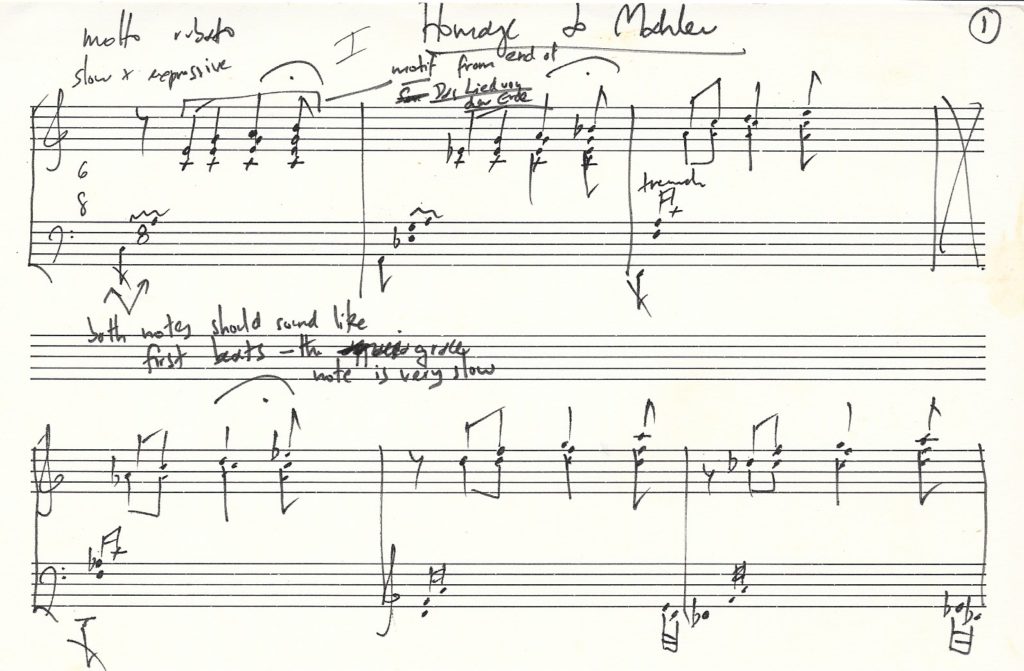 Homage to Mahler
①
molto rubato
I
slow + expressive
motif from end of
Das Lied von
der Erde
6
8
both notes should sound like
first beats – the grace
note is very slow